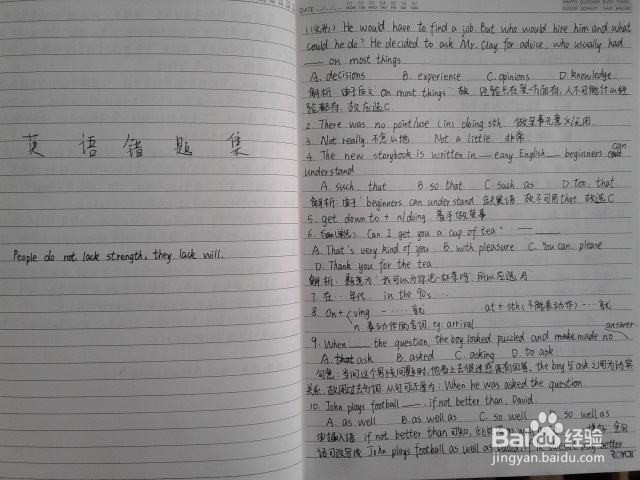 英语错题集
People do not lack strength, they lack will.
DATE
1.(完形) He would have to find a job. But who would hire him and what
could he do? He decided to ask Mr. Clay for advice, who usually had
___ on most things.
A. decisions B. experience C. opinions D. knowledge.
解析: 由于后文"On most things" 故, 经验只在某一方面有, 人不可能什么经
验都有, 故应选C.
2. There was no point/use (in) doing sth. 做某事无意义/无用
3. Not really. 不怎么地 Not a little 非常
4. The new storybook is written in ___ easy English ___ beginners can
understand
A. such, that B. so that C. such as D. too, that
解析: 由于 beginners can understand 缺宾语, 故不可用that 故选C
5. get down to + n/doing 着手做某事
6. Can I get you a cup of tea? ___
A. That's very kind of you B. with pleasure C. You can, please
D. Thank you for the tea
解析: 题意为"我可以为你送一杯茶吗", 所以应选A
7. 在…年代, in the 90s…
8. On + ving — ……就 at + sth(不能表动作) ……就
n. 表动作的名词, eg: arrival.
9. When ___ the question, the boy looked puzzled and made no answer.
A. ask B. asked C. asking D. to ask
句意: 当问这个男孩问题时, 他看上去很迷惑没有回答, the boy与ask之间为动宾
关系, 故用过去分词, 从句可还原为: When he was asked the question.
10. John plays football ___, if not better than, David.
A. as well B. as well as C. so well D. so well as
由插入语 if not better than 可知,
John plays football as well as David, better
Baidu经验
jingyan.baidu.com